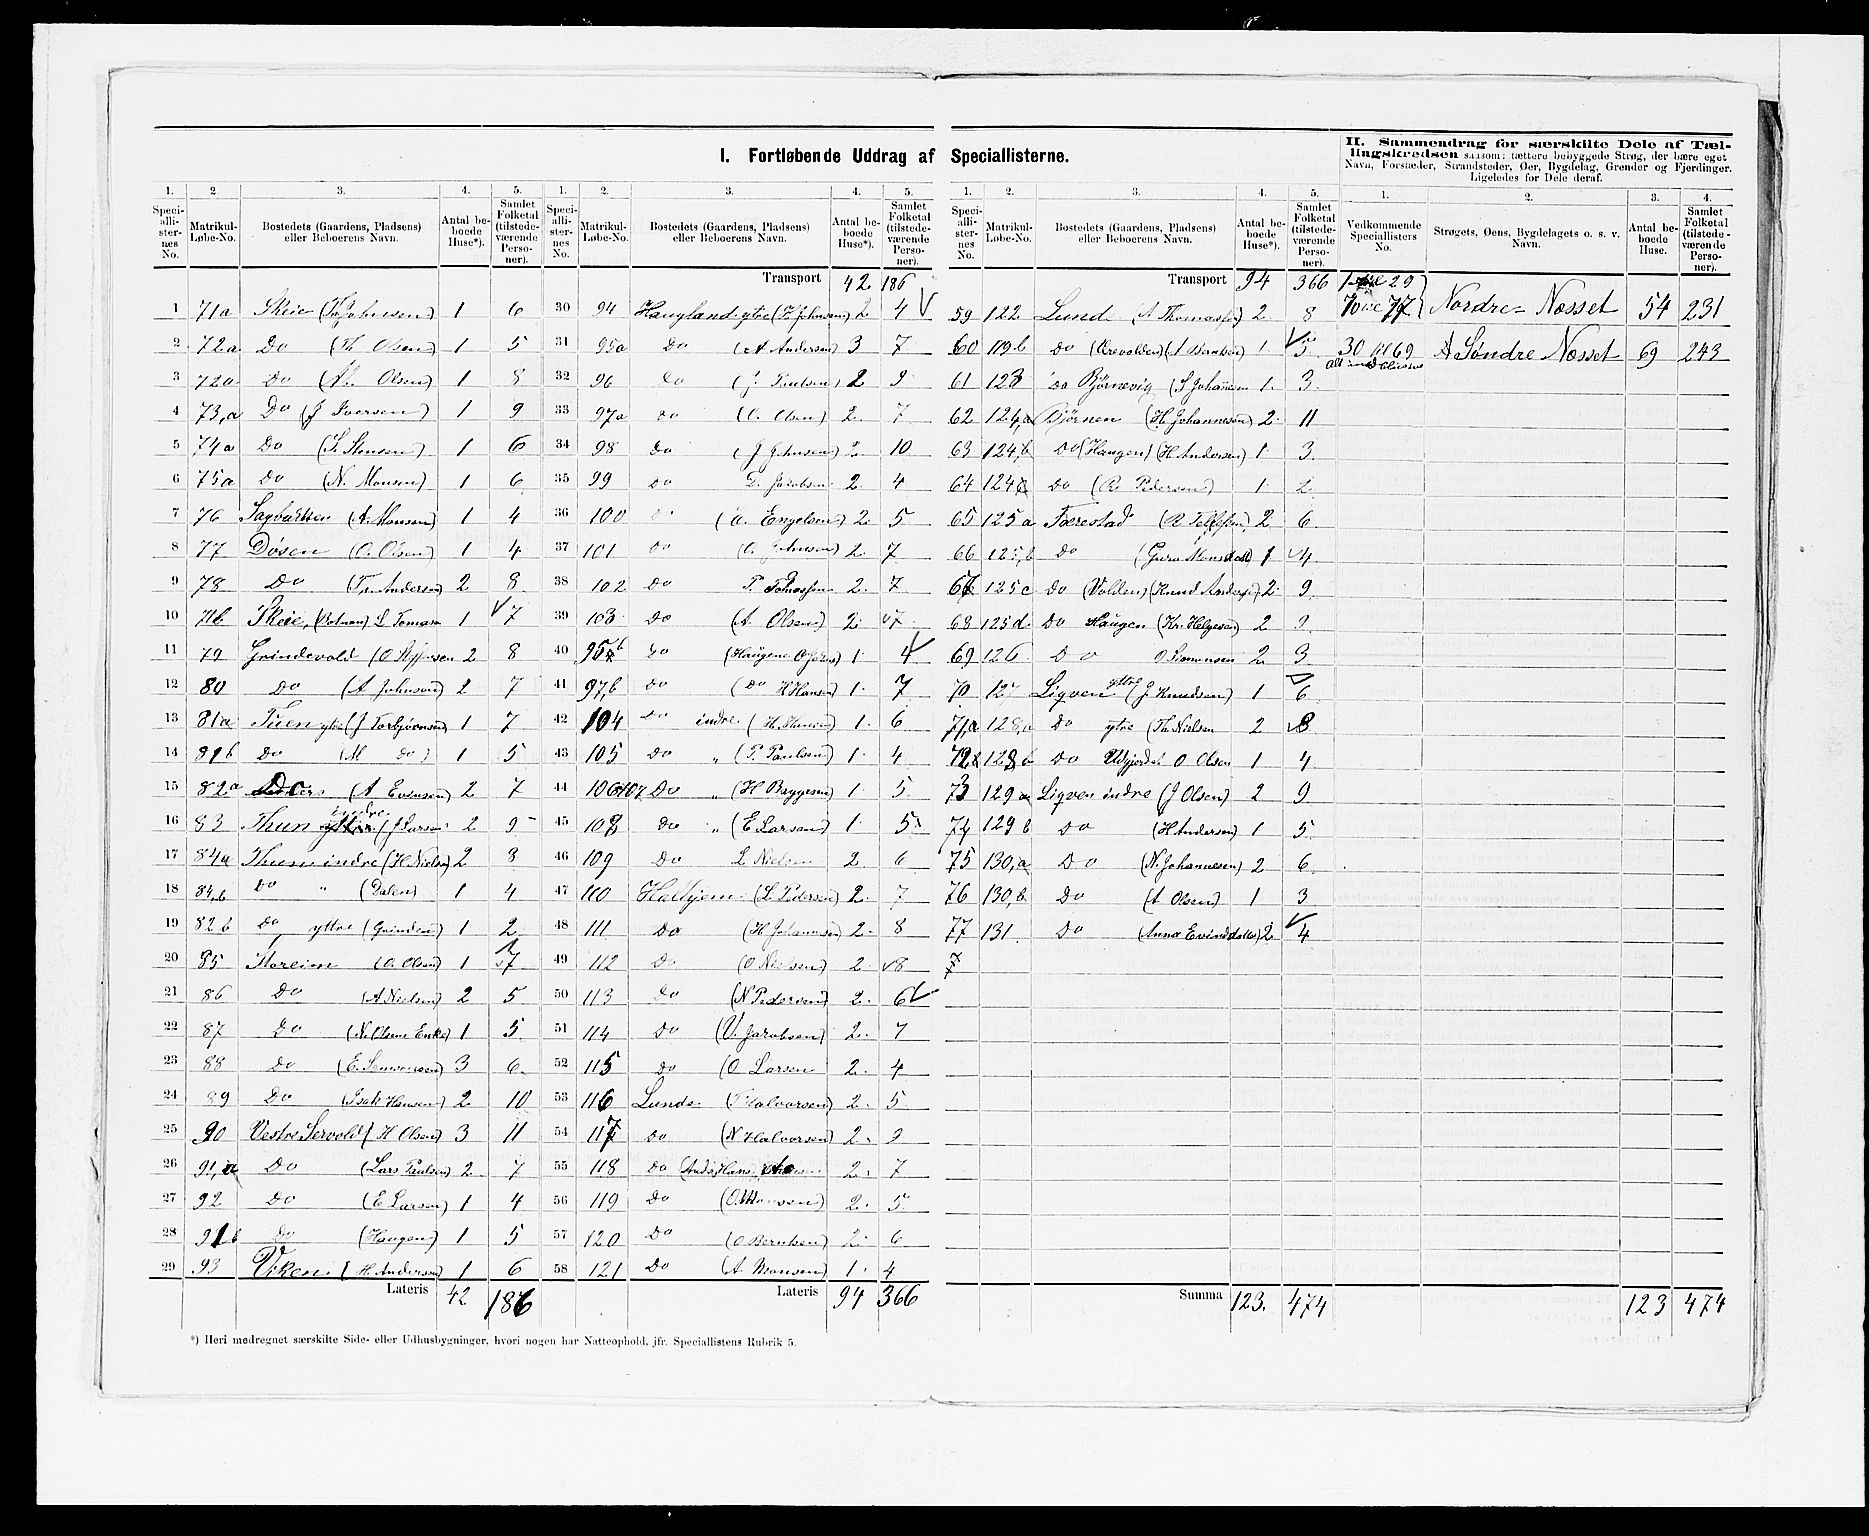 I. Fortløbende Uddrag af Speciallisterne.
II. Sammendrag for særskilte Dele af Tæl-
lingskredsen saasom: tættere bebyggede Strøg, der bære eget
Navn, Forstæder, Strandsteder, Øer, Bygdelag, Grender og Fjerdinger.
Ligeledes for Dele deraf.
1. 2 3. 4. 5.
Speciallisternes No. Matrikul-Løbe-No. Bostedets (Gaardens, Pladsens) eller Beboerens Navn. Antal beboede Huse*). Samlet Folketal (tilstedeværende Personer).
1 71a Skeie (T. Johnsen) 1 6
2 72a Do (Th. Olsen) 1 5
3 72a Do Olsen) 1 8
4 73,a Do (J Iversen) 1 9
5 74a Do 1 6
6 75a Do (N. Monsen) 1 6
7 76 Sagbakken (A. Monsen) 1 4
8 77 Døsen (O. Olsen) 1 4
9 78 Do (Th. Andersen) 2 8
10 71b Skeie, L Tomasen 1 7
11 79 Grindevold 2 8
12 80 Do (A Johnsen) 2 7
13 81a Tuen ytre (J Torbjørnsen) 1 7
14 81b Do (M do) 1 5
15 82a Do (A Evensen) 2 7
16 83 Thun indre (J Larsen 2 9
17 84a Thun indre (H Nielsen) 2 8
18 84,b Do " (Dalen) 1 4
19 82b Do yttre (Grinden) 1 2
20 85 Moreim (O. Olsen) 1 7
21 86 Do (A Nielsen) 2 5
22 87 Do (N. Olsens Enke) 1 5
23 88 Do (E. Simonsen) 3 6
24 89 Do (Isak Hansen) 2 10
25 90 Vestre Servold (H Olsen) 3 11
26 91,a Do (Lars Paulsen) 2 7
27 92 Do (E Larsen) 1 4
28 91b Do (Haugen) 1 5
29 93 Viken (H. Andersen) 1 6
Lateris 42 186
1. 2. 3. 4. 5.
Speciallisternes No. Matrikul-Løbe-No. Bostedets (Gaardens, Pladsens) eller Beboerens Navn. Antal beboede Huse*). Samlet Folketal (tilstedeværende Personer).
Transport 42 186
30 94 Haugland ytre (H Johnsen) 2 4
31 95a Do (A Andersen) 3 7
32 96 Do (J. Paulsen) 2 9
33 97a Do (O. Olsen) 2 7
34 98 Do (J Johnsen) 2 10
35 99 Do D. Jacobsen 2 4
36 100 Do Engelsen) 2 5
37 101 Do (O. Johnsen) 2 7
38 102 Do T. Tomassen 2 7
39 103 Do (A. Olsen) 2 7
40 95b Do (Haugene 1 4
41 97b Do (Do H Hansen) 1 7
42 104 Do indre (H. Hansen) 1 6
43 105 Do " (P. Paulsen) 1 4
44 106+107 Do " (H Baggesen) 1 5
45 108 Do " (E Larsen) 1 5
46 109 Do L Nielsen 2 6
47 110 Halhjem (L. Pedersen) 2 7
48 111 Do (H Johannsen) 2 8
49 112 Do (O Nielsen) 2 8
50 113 Do (N Pedersen) 2 6
51 114 Do Jacobsen) 2 7
52 115 Do (O Larsen 2 4
53 116 Lunde Halvorsen) 2 5
54 117 Do (N Halvorsen) 2 9
55 118 Do 2 7
56 119 Do (O. Monsen) 2 5
57 120 Do (O Berntsen) 2 6
58 121 Do (A. Monsen) 1 4
Lateris 94 366
1. 2. 3. 4. 5.
Speciallisternes No. Matrikul-Løbe-No. Bostedets (Gaardens, Pladsens) eller Beboerens Navn. Antal beboede Huse*). Samlet Folketal (tilstedeværende Personer).
Transport 94 366
59 122 Lund (A Thomassen) 2 8
60 119b Do (A Berntsen) 1 5
61 123 Do Bjørnevig (S Johannesen 1 3
62 124,a Bjørnen (H. Johannesen) 2 11
63 124,b Do (Haugen) (H Andersen) 1 3
64 124 Do Pedersen) 1 2
65 125a Færestad (R Tellefsen) 2 6
66 125,b Do (Guro Monsdatt) 1 4
67 125c Do (Volden) (Knud Andersen) 2 9
68 125d. Do Haugen (Kr. Helgesen) 2 9
69 126 Do O Simonsen 2 3
70 127 Ligven yttre (J Knudsen) 1 6
71,a 128,a Do ytre (Th. Nielsen 2 8
72 128b Do Udgjerdet O Olsen 1 4
73 129a Ligven indre (J Olsen) 2 9
74 129b Do (H Andersen) 1 5
75 130,a Do (N. Johannesen) 2 6
76 130,b Do (A Olsen) 1 3
77 131 Do (Anna Evindsdatter) 2 4
7
Summa 123. 474
1. 2. 3. 4.
Vedkommende Speciallisters No. Strøgets, Øens, Bygdelagets o. s. v. Navn. Antal beboede Huse. Samlet Folketal (tilstedeværende Personer).
1 til 29
70 til 77 Nordre Næsset 54 231
30 til 69 Søndre Næsset 69 243
alt inclusive
123 474
*) Heri medregnet særskilte Side- eller Udhusbygninger, hvori nogen har Natteophold, jfr. Speciallistens Rubrik 5.